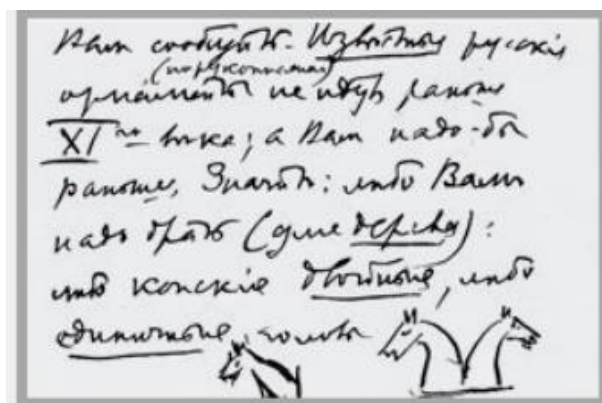 Вам сообщить. Известные русскіе
(по рукописямъ)
орнаменты не идутъ раньше
XI го вѣка; а Вамъ надо-бы
раньше. Значитъ: либо Вамъ
надо брать (для дерева):
либо конскія двойныя, либо
единичныя головы